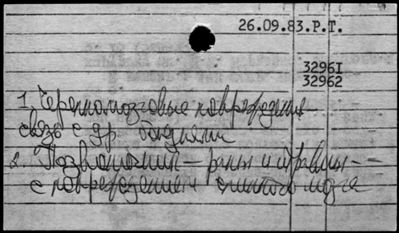 26.09.83.Р.Т.
32961
32962
1. Черепномозговые повреждения
связь с др.
2. Позвоночник - раны и травмы --
с повреждением спинного мозга